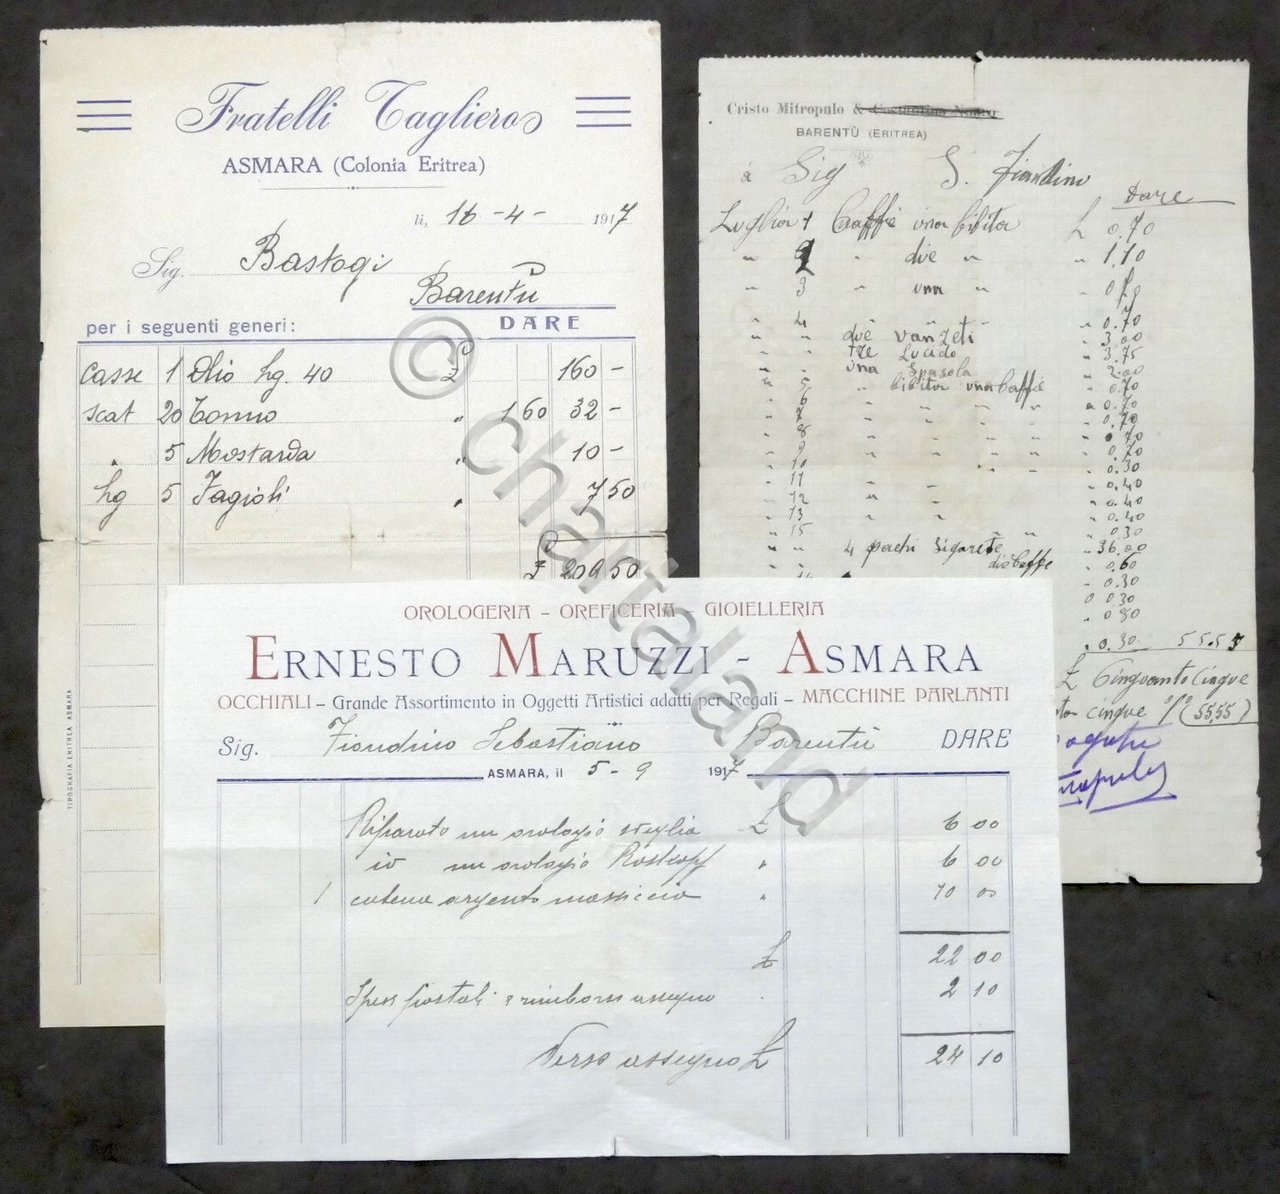 Fratelli Tagliero
ASMARA (Colonia Eritrea)
li, 16-4- 1917
Sig. Bastogi
Barentù
per i seguenti generi: DARE
casse 1 Olio hg. 40 £ 160 -
scat 20 Tonno " 1 60 32 -
" 5 Mostarda " 10 -
hg 5 Fagioli " 7 50
£ 209 50
TIPOGRAFIA ERITREA ASMARA
Cristo Mitropulo &
BARENTÙ (ERITREA)
à Sig S. Fiandino
Dare
Luglio 1 Caffè una bibita £ 0.70
" 2 " die " " 1.10
" 3 " una " "
" 4 " " " 0.70
" " die vanzeti " 3.00
" " tre Lucido " 3.75
" " una Spasola " 2.00
" 5 bibita una Caffè 0.70
" 6 " " " " 0.70
" 7 " " " 0.70
" 8 " " " 0.70
" 9 " " " 0.70
" 10 " " " 0.30
" 11 " " 0.40
" 12 " " 0.40
" 13 " " 0.40
" 15 " " 0.30
" " 4 pachi Sigarete " 36.00
dio Caffe " 0.60
" 0.30
0.30
" 0.80
" 0.30 55.55
£ Cinquanto Cinque
cinque % (55.55)
OROLOGERIA - OREFICERIA - GIOIELLERIA
ERNESTO MARUZZI - ASMARA
OCCHIALI - Grande Assortimento in Oggetti Artistici adatti per Regali - MACCHINE PARLANTI
Sig. Fiandino Sebastiano Barentù DARE
ASMARA, il 5-9 1917
Riparato un orologio sveglia £ 6 00
io un orologio Roskopf " 6 00
1 catena argento massiccio " 10 00
£ 22 00
Spese postali e rimborso assegno . 2 10
Verso assegno £ 24 10
© chartaland